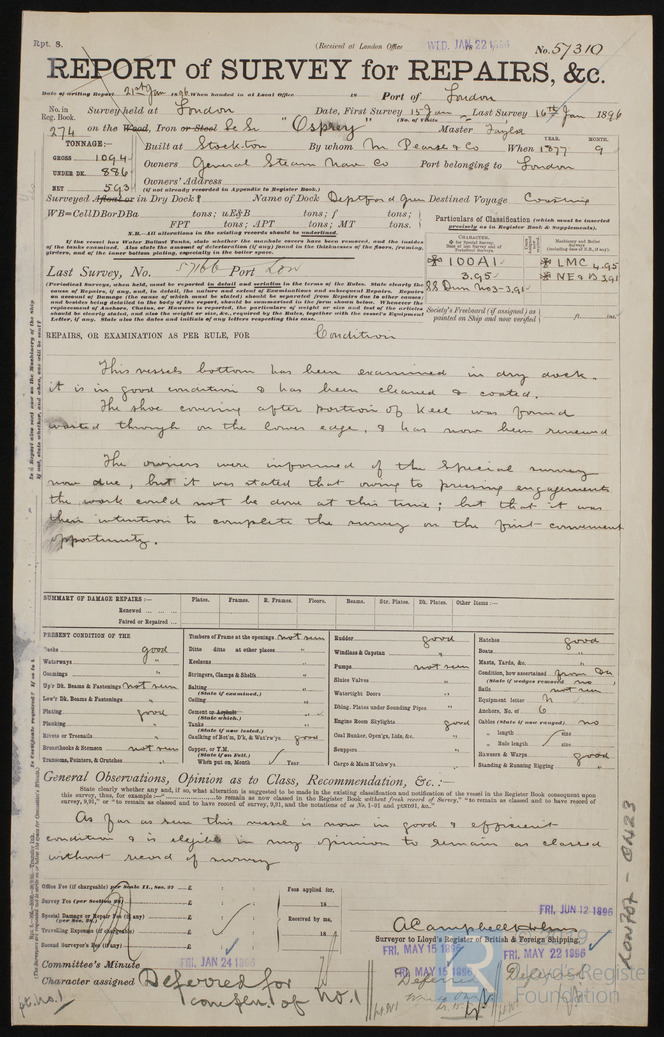 Rpt. 8.
(Received at London Office WED. JAN 22 1896
No. 57310
REPORT of SURVEY for REPAIRS, &c.
Date of writing Report 21st Jan 1896 When handed in at Local Office 18 Port of London
No. in Reg. Book. Survey held at London Date, First Survey 15 Jan Last Survey 16th Jan 1896
(No. of Visits
274 on the Wood, Iron or Steel Sc Sr "Osprey" Master Taylor
TONNAGE:— Built at Stockton By whom M. Pearse & Co When 1877 9
YEAR. MONTH.
GROSS 1094
UNDER DK. 886
NET 593
Owners General Steam Nav Co Port belonging to London
Owners' Address
(if not already recorded in Appendix to Register Book.)
Surveyed Afloat or in Dry Dock? Name of Dock Deptford Green Destined Voyage Coasting
WB=CellDBorDBa tons; uE&B tons; f tons;
FPT tons; APT tons; MT tons.
N.B.—All alterations in the existing records should be underlined.
If the vessel has Water Ballast Tanks, state whether the manhole covers have been removed, and the insides of the tanks examined. Also state the amount of deterioration (if any) found in the thicknesses of the floors, framing, girders, and of the inner bottom plating, especially in the boiler space.
Particulars of Classification (which must be inserted precisely as in Register Book & Supplements).
CHARACTER.
Machinery and Boiler Surveys
100A1 LMC 4.95
3.95 NE&B 3,91
SS Dun No3-3,91
Last Survey, No. 57166 Port Lon
(Periodical Surveys, when held, must be reported in detail and seriatim in the terms of the Rules. State clearly the cause of Repairs, if any, and, in detail, the nature and extent of Examinations and subsequent Repairs. Repairs on account of Damage (the cause of which must be stated) should be separated from Repairs due to other causes; and besides being detailed in the body of the report, should be summarised in the form shown below. Whenever the replacement of Anchors, Chains, or Hawsers is reported, the particulars of weight or size and test of the articles should be clearly stated, and also the weight or size, &c., required by the Rules, together with the vessel's Equipment Letter, if any. State also the dates and initials of any letters respecting this case.
Society's Freeboard (if assigned) as painted on Ship and now verified ft. ins.
REPAIRS, OR EXAMINATION AS PER RULE, FOR Condition
This vessels bottom has been examined in dry dock.
it is in good condition & has been cleaned & coated.
The shoe covering after portion of keel was found
wasted through on the lower edge, & has now been renewed
The owners were informed of the special survey
now due, but it was stated that owing to pressing engagements
the work could not be done at this time; but that it was
their intention to complete the survey on the first convenient
opportunity.
SUMMARY OF DAMAGE REPAIRS:— Plates. Frames. R. Frames. Floors. Beams. Str. Plates. Dk. Plates. Other Items:—
Renewed
Faired or Repaired
PRESENT CONDITION OF THE
Decks good
Waterways "
Coamings "
Up'r Dk. Beams & Fastenings not seen
Low'r Dk. Beams & Fastenings "
Plating good
Planking
Rivets or Treenails "
Breasthooks & Stemson not seen
Transoms, Pointers, & Crutches "
Timbers of Frame at the openings not seen
Ditto ditto at other places "
Keelsons "
Stringers, Clamps & Shelfs "
Salting (State if examined.)
Ceiling "
Cement or Asphalt (State which.) "
Tanks (State if now tested.)
Caulking of Bot'm, D'k, & Wat'rw'ys good
Copper, or Y.M. (State if on Felt.)
When put on, Month Year
Rudder good
Windlass & Capstan "
Pumps not seen
Sluice Valves "
Watertight Doors "
Dblng. Plates under Sounding Pipes "
Engine Room Skylights good
Coal Bunker, Open'gs, Lids, &c. "
Scuppers "
Cargo & Main H'tchw'ys "
Hatches good
Boats "
Masts, Yards, &c. "
Condition, how ascertained from Dk
(State if wedges removed no)
Sails not seen
Equipment letter N
Anchors, No. of 6
Cables (State if now ranged) no
" length size
" Rule length size
Hawsers & Warps good
Standing & Running Rigging "
General Observations, Opinion as to Class, Recommendation, &c.:—
State clearly whether any, and if so, what alteration is suggested to be made in the existing classification and notification of the vessel in the Register Book consequent upon this survey, thus, for example:—" to remain as now classed in the Register Book without fresh record of Survey," "to remain as classed and to have record of survey, 9,91," or "to remain as classed and to have record of survey, 9,91, and the notations of
As far as seen this vessel is now in good & efficient
condition & is eligible in my opinion to remain as classed
without record of survey
Office Fee (if chargeable) per Scale II., Sec. 27 £
Survey Fee (per Section 28) £
Special Damage or Repair Fee (if any) (per Sec. 28.) £
Travelling Expenses (if chargeable) £
Second Surveyor's Fee (if any) £
Fees applied for, 18
Received by me, 18
FRI, JUN 12 1896
A Campbell Holms
Surveyor to Lloyd's Register of British & Foreign Shipping.
FRI. MAY 15 1896
FRI. MAY 22 1896
Committee's Minute FRI. JAN 24 1896
FRI. MAY 15 1896
Character assigned Deferred for
complen. of No. 1
Deferred
Deferred
pt. no. 1
LON707-0423
2019
Lloyd's Register
Foundation